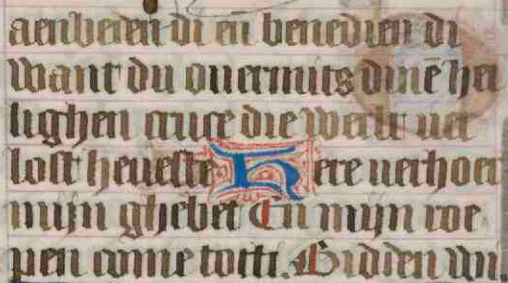 aenbeden di en benedien di
want du ouermits dinē hei
lighen cruce die werlt uer
lost heueste Here uerhoert
mijn ghebet En mijn roe
pen come tot ti. Bidden wi.